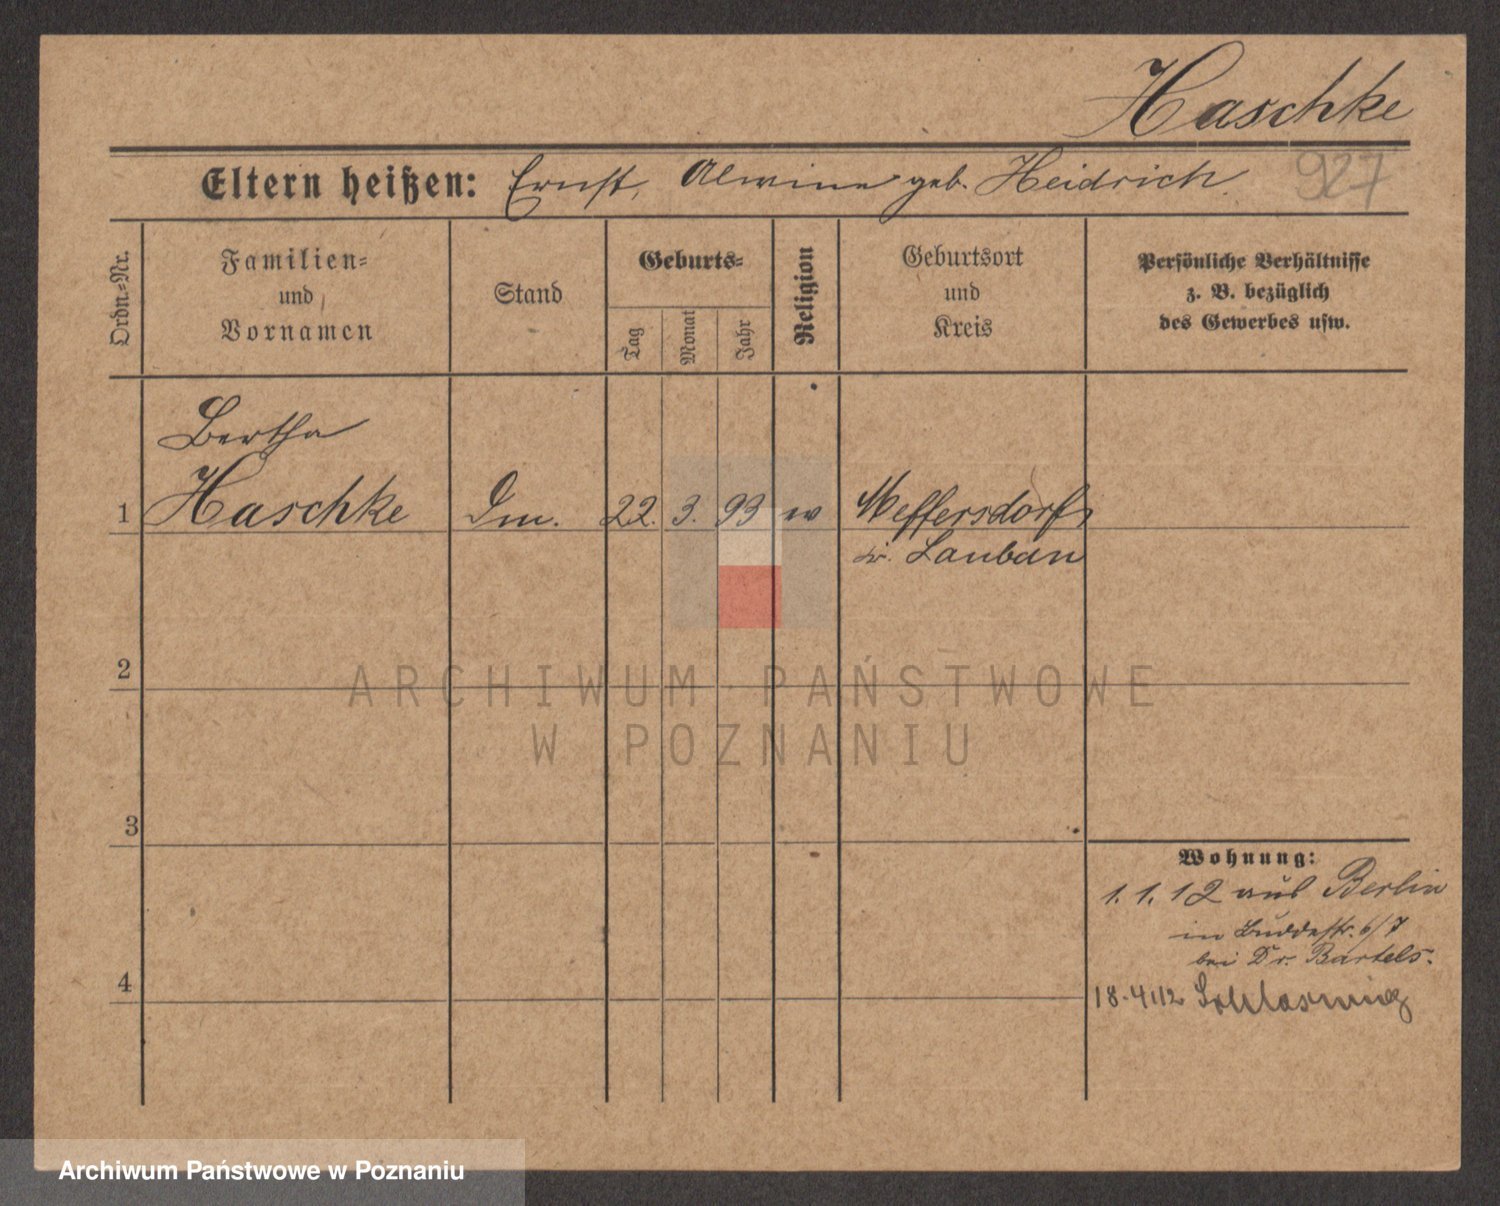 Haschke
927
Eltern heißen: Ernst, Alwine geb. Heidrich.
Ordn.-Nr.
Familien-
und
Vornamen
Stand
Geburts-
Tag
Monat
Jahr
Religion
Geburtsort
und
Kreis
Persönliche Verhältnisse
z. B. bezüglich
des Gewerbes usw.
Bertha
1 Haschke Dm. 22. 3. 93 w Meffersdorf,
Kr. Lauban
2
3
4
Wohnung:
1. 1. 12 aus Berlin
in Buddestr. 6/7
bei Dr. Bartels.
18.4.12 Schleswig
ARCHIWUM PAŃSTWOWE
W POZNANIU
Archiwum Państwowe w Poznaniu